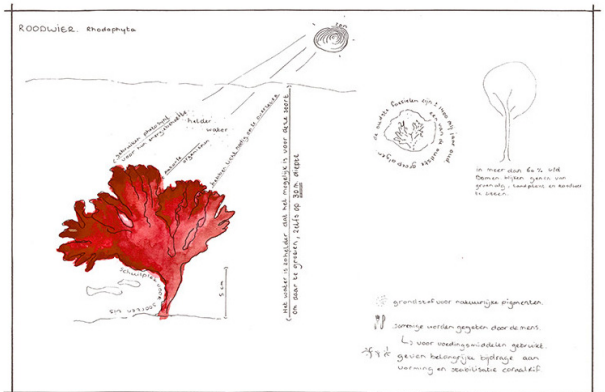 ROODWIER. Rhodophyta
zon
gebruiken photosynthese
voor hun energiebehoefte
helder
water
mariene
organismen
hebben licht nodig om te overleven
Het water is zo helder dat het mogelijk is voor deze soort
om daar te groeien, zelfs op 30 m diepte
schuilplek voor
soorten vis
5 cm
de oudste fossielen zijn ± 1200 milj. jaar oud
een van de oudste groepalgen
in meer dan 60 % v/d
bomen blijken genen van
groenalg, landplant en roodwier
te zitten.
grondstof voor natuurlijke pigmenten.
sommige worden gegeten door de mens.
↳ voor voedingsmiddelen gebruikt.
geven belangrijke bijdrage aan
vorming en stabilisatie coraalrif.